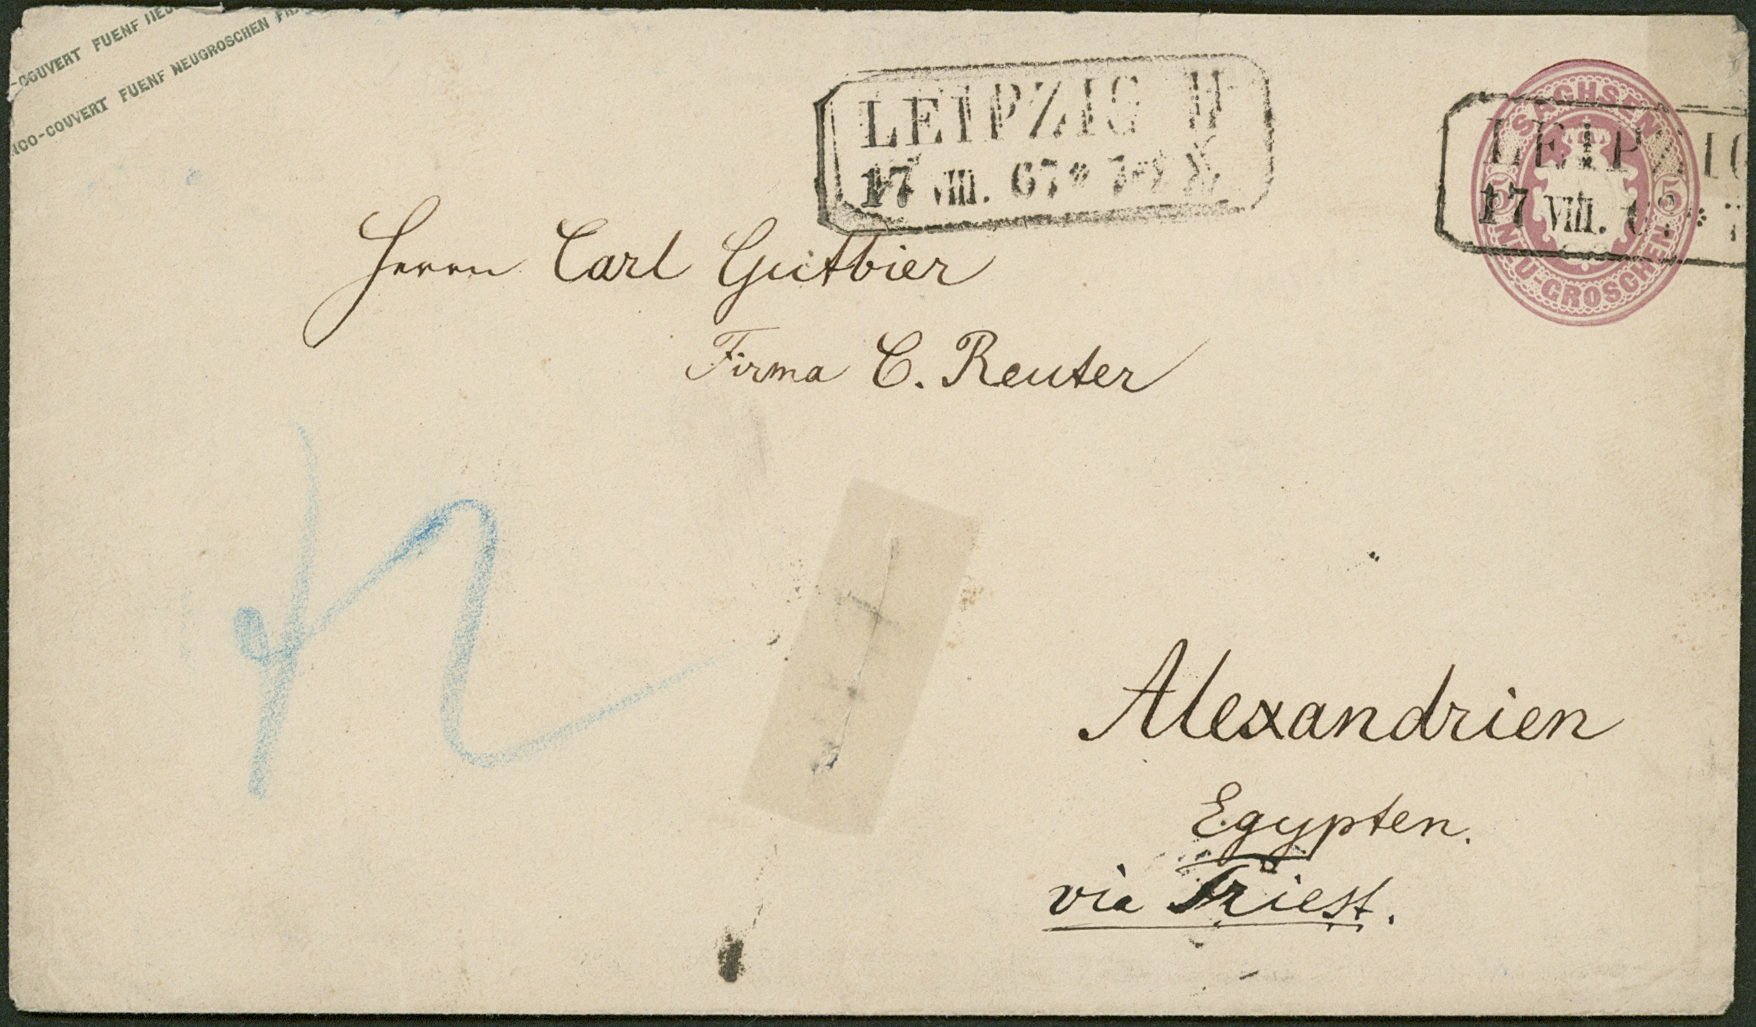 -COUVERT FUENF NEU
NCO-COUVERT FUENF NEUGROSCHEN FR
LEIPZIG II
17 VIII. 67 * 7-
SACHSEN
5 5
NEU-GROSCHEN
LEIPZIG
17 VIII. 6 * 7
Herrn Carl Gutbier
Firma C. Reuter
Alexandrien
Egypten.
via Triest.